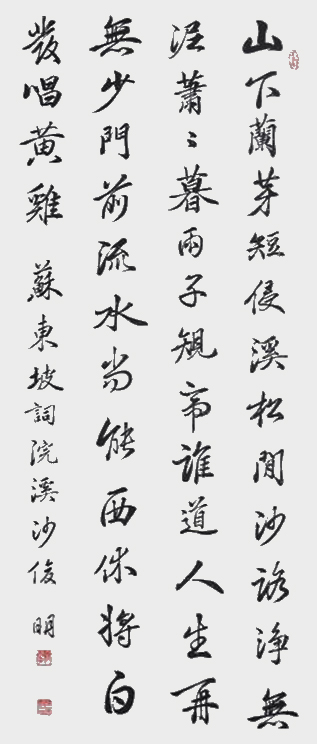 山下蘭芽短侵溪松間沙路淨無
泥蕭〻暮雨子規啼誰道人生再
無少門前流水尚能西休將白
發唱黃雞 蘇東坡詞浣溪沙俊明